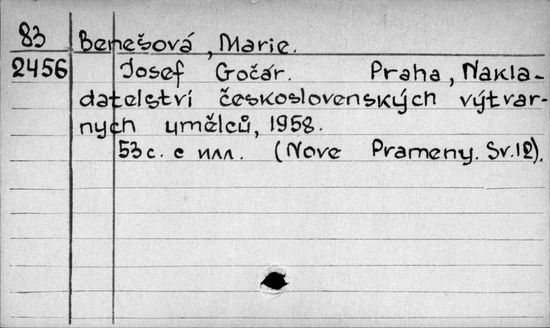 83 Benešová, Marie.
2456 Josef Gočár. Praha, Nakla-
datelství československých výtvar-
ných umělců, 1958.
53 с. с илл. (Nove Prameny. Sv. 12).